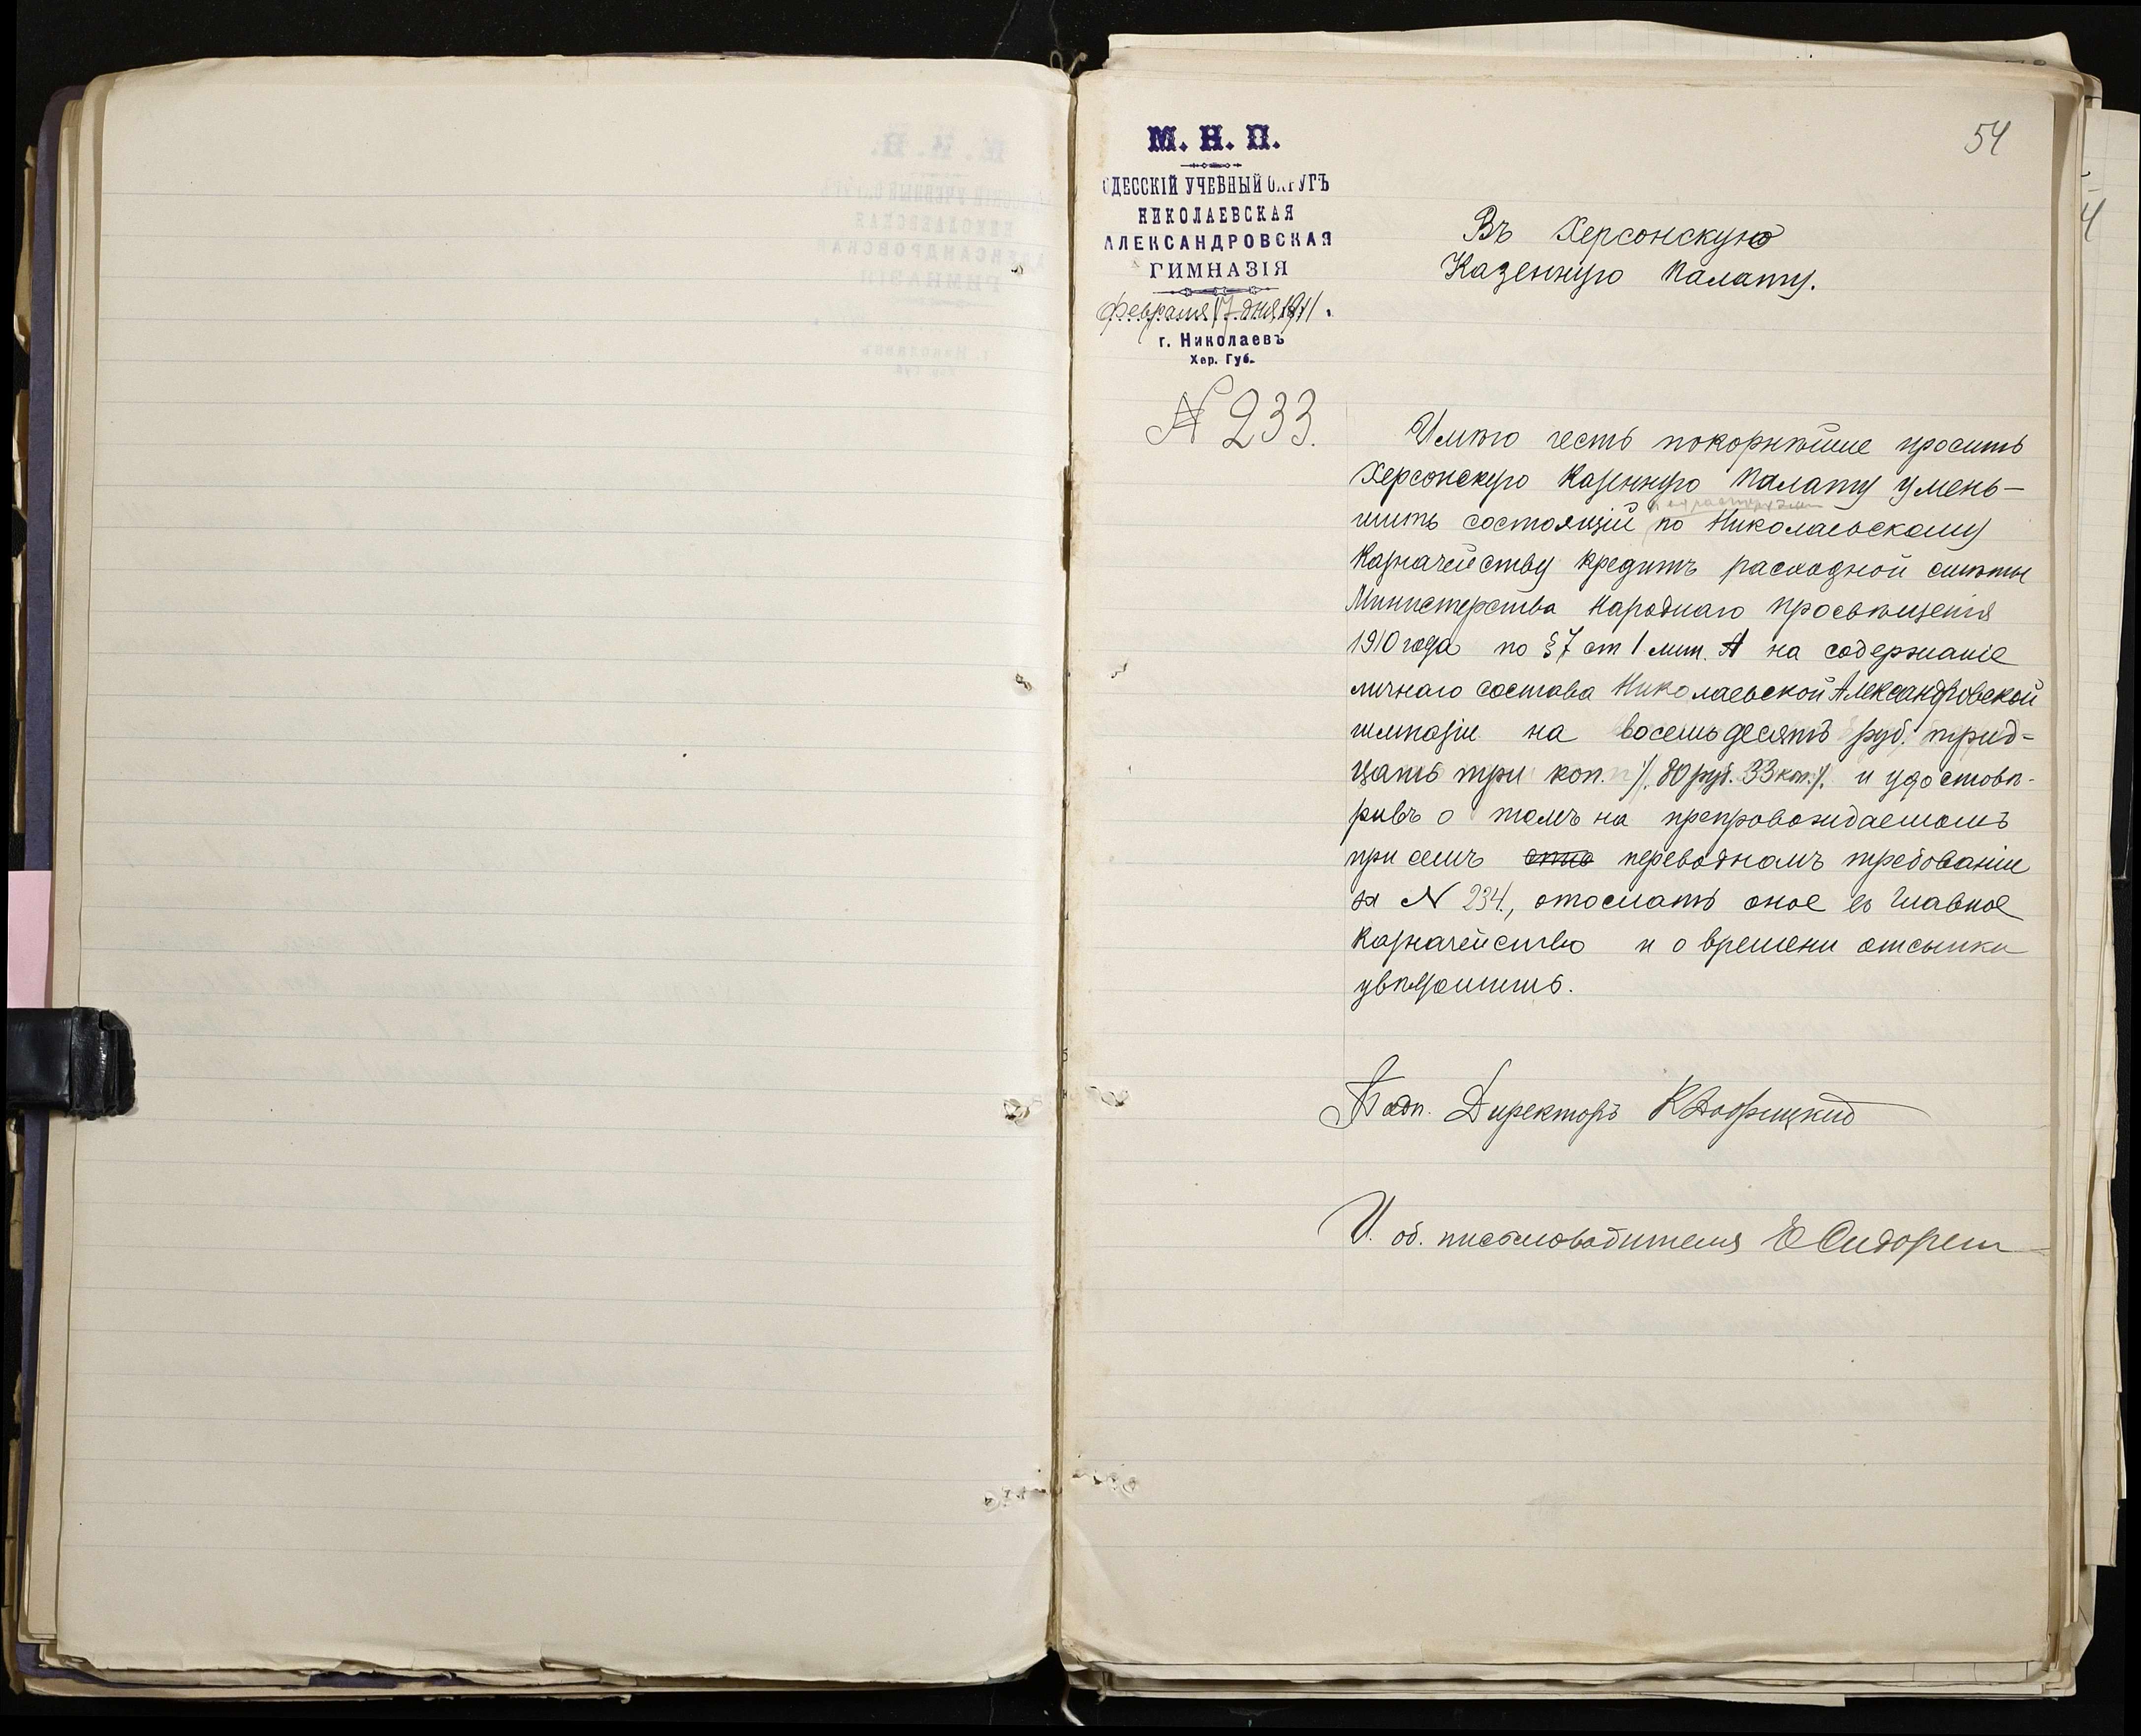 54
М. Н. П.
ОДЕССКІЙ УЧЕБНЫЙ ОКРУГЪ
НИКОЛАЕВСКАЯ
АЛЕКСАНДРОВСКАЯ
ГИМНАЗІЯ
Февраля 17 дня 1911.
г. Николаевъ
Хер. Губ.
N 233.
Въ Херсонскую
Казенную Палату.
Имѣю честь покорнѣйше просить
Херсонскую Казенную Палату умень-
шить состоящій по Николаевскому
Казначейству кредитъ расходной смѣты
Министерства Народнаго Просвѣщенія
1910 года по § 7 ст 1 лит. А на содержаніе
личнаго состава Николаевской Александровской
гимназіи на восемьдесятъ руб. трид-
цать три коп. /. 80 руб. 33 коп./. и удостовѣ-
ривъ о томъ на препровождаемомъ
при семъ переводномъ требованіи
за N 234, отослать оное въ Главное
Казначейство и о времени отсылки
увѣдомить.
Подп. Директоръ
И. об. письмоводителя Е Сидорен